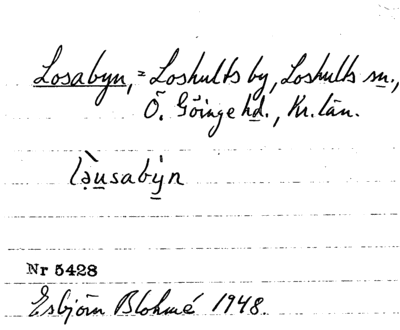 Losabyn, = Loshults by, Loshults sn.,
Ö. Göinge hd., Kr. län.
lə̣̀usabẏn
Nr 5428
Esbjörn Blohmé 1948.